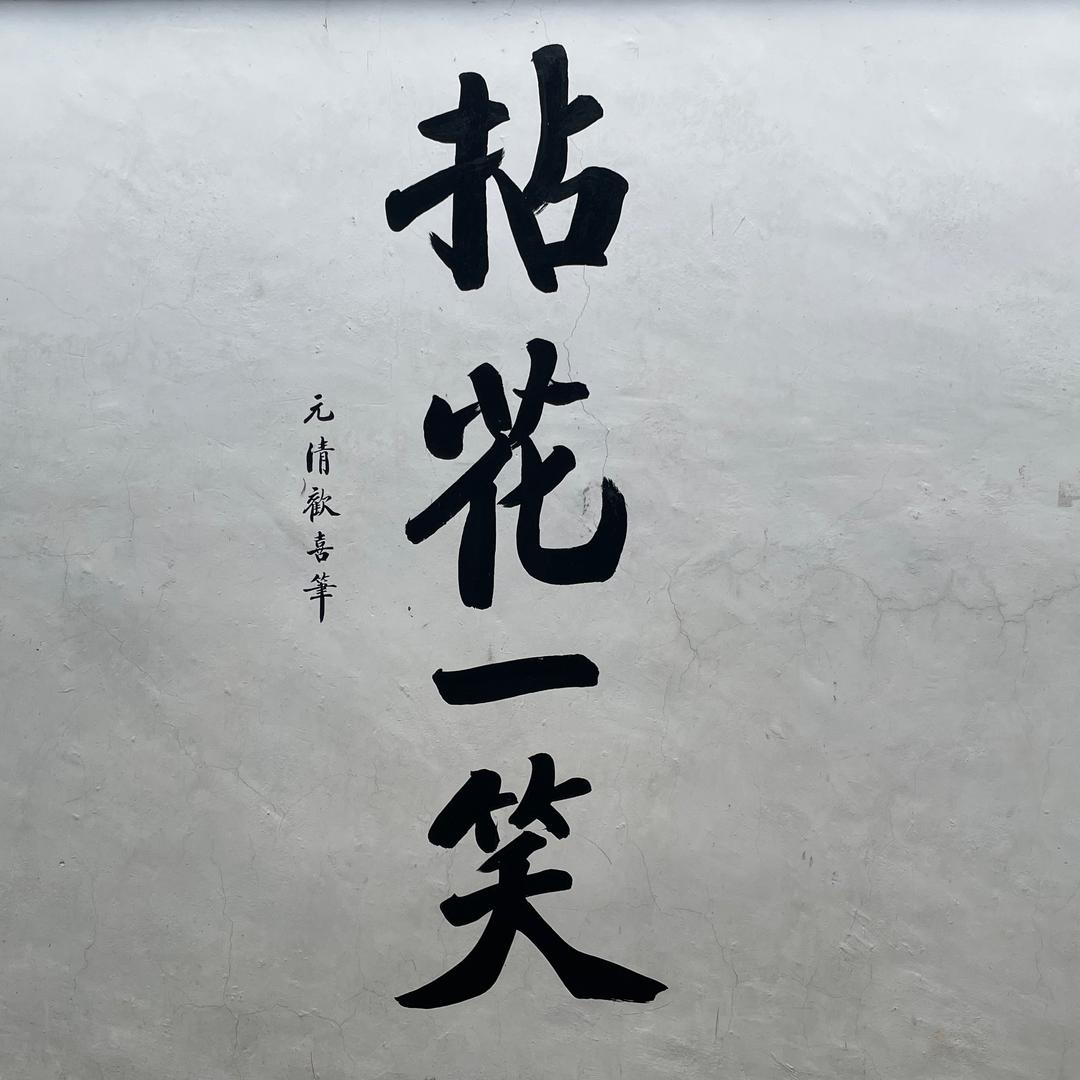 拈花一笑
元清歡喜筆